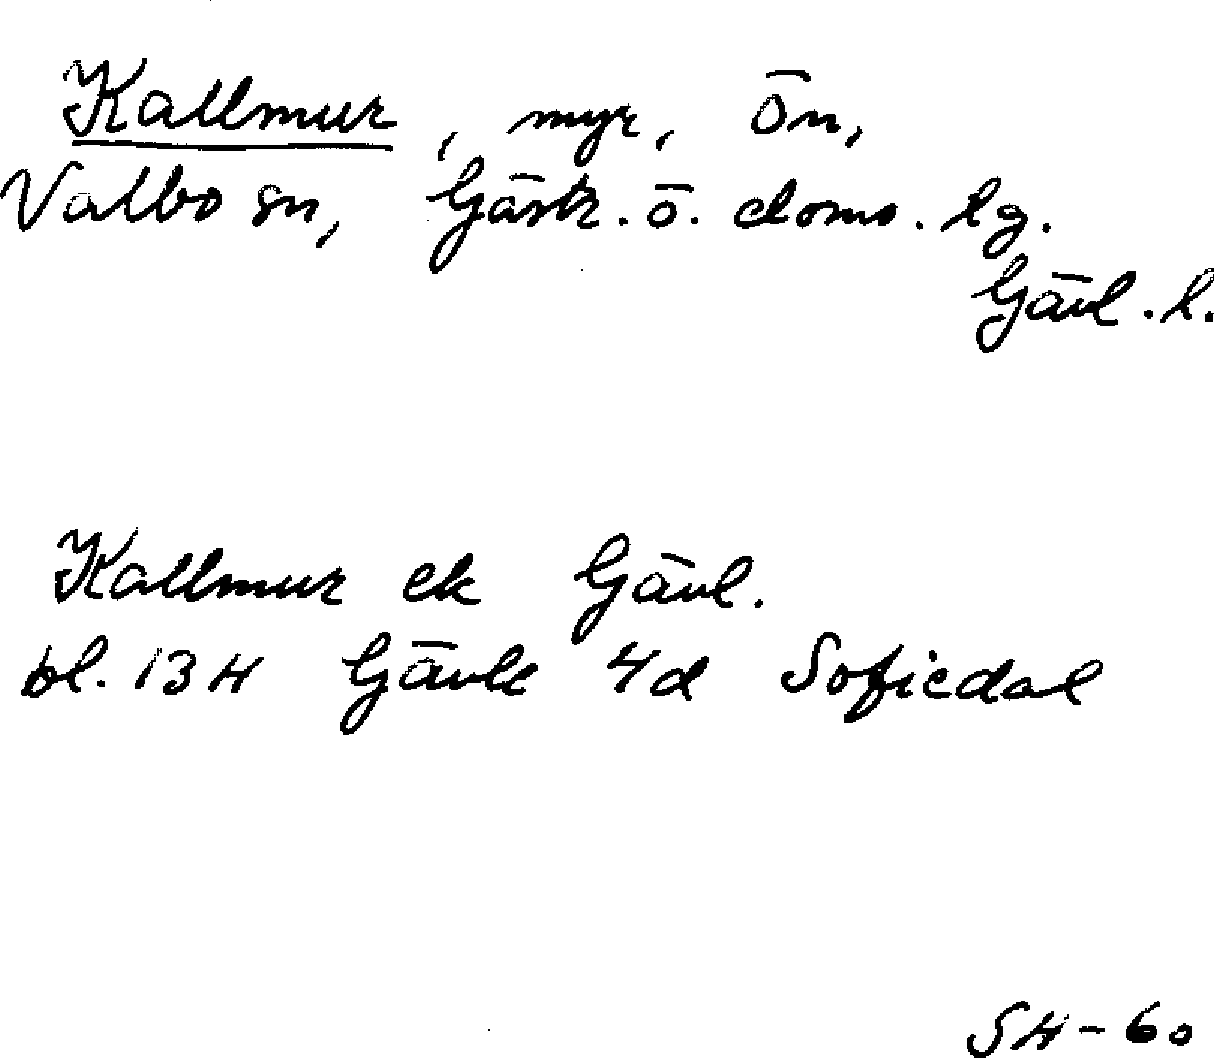 Kallmur, myr, Ön,
Valbo sn, Gästr. ö. doms. lg.
Gävl. l.
Kallmur ek Gävl.
bl. 134 Gävle 4d Sofiedal
SH-60